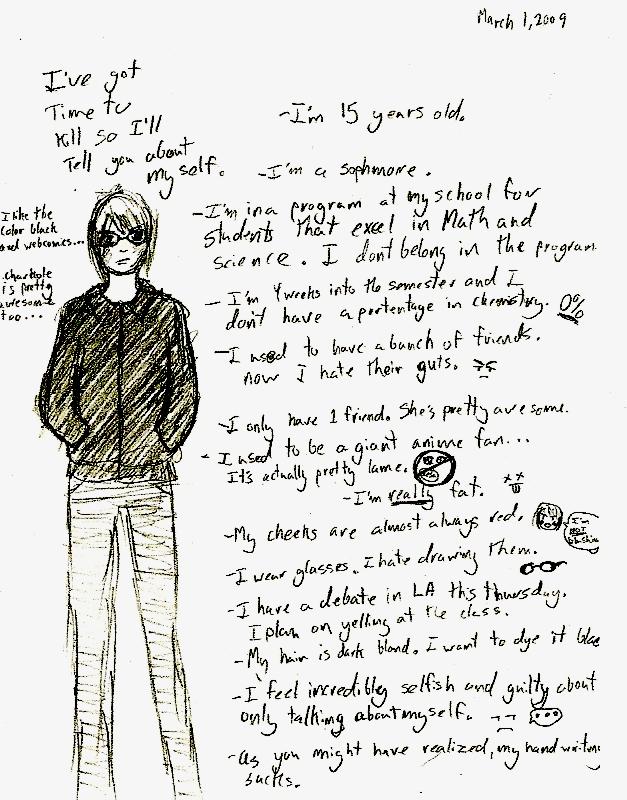 March 1, 2009
I've got
Time to
kill so I'll
Tell you about
my self.
I like the
color black
and webcomics...
Charkole
is pretty
awesome
too...
-I'm 15 years old.
-I'm a sophmore.
-I'm in a program at my school for
students that excel in Math and
science. I dont belong in the program.
-I'm 4 weeks into the semester and I
don't have a pertentage in chemistry. 0%
-I used to have a bunch of friends.
now I hate their guts.
-I only have 1 friend. She's pretty awesome.
-I used to be a giant anime fan...
It's actually pretty lame.
-I'm really fat.
-My cheeks are almost always red.
I'm
NOT
blushing
-I wear glasses. I hate drawing them.
-I have a debate in LA this thursday.
I plan on yelling at the class.
-My hair is dark blond. I want to dye it
-I feel incredibley selfish and guilty about
only talking about myself.
-As you might have realized, my hand writing
sucks.